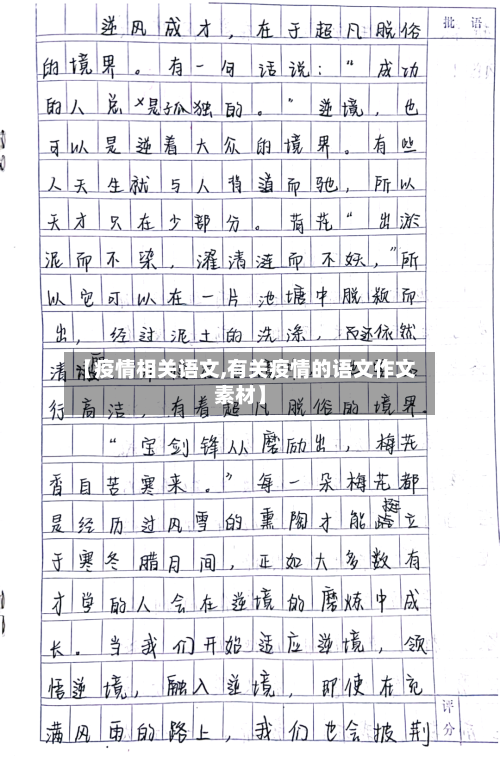 批 语
逆风成才，在于超凡脱俗
的境界。有一句话说：“成功
的人总是孤独的。”逆境，也
可以是逆着大众的境界。有些
人天生就与人背道而驰，所以
天才只在少部分。荷花“出淤
泥而不染，濯清涟而不妖，”所
以它可以在一片池塘中脱颖而
出，经过泥土的洗涤，而还依然
清
【疫情相关语文,有关疫情的语文作文
素材】
行高洁，有着超凡脱俗的境界.
“宝剑锋从磨励出，梅花
香自苦寒来。”每一朵梅花都
是经历过风雪的熏陶才能挺立
于寒冬腊月间，正如大多数有
才学的人会在逆境的磨炼中成
长。当我们开始适应逆境，领
悟逆境，融入逆境，即使在充
满风雨的路上，我们也会披荆
评
分